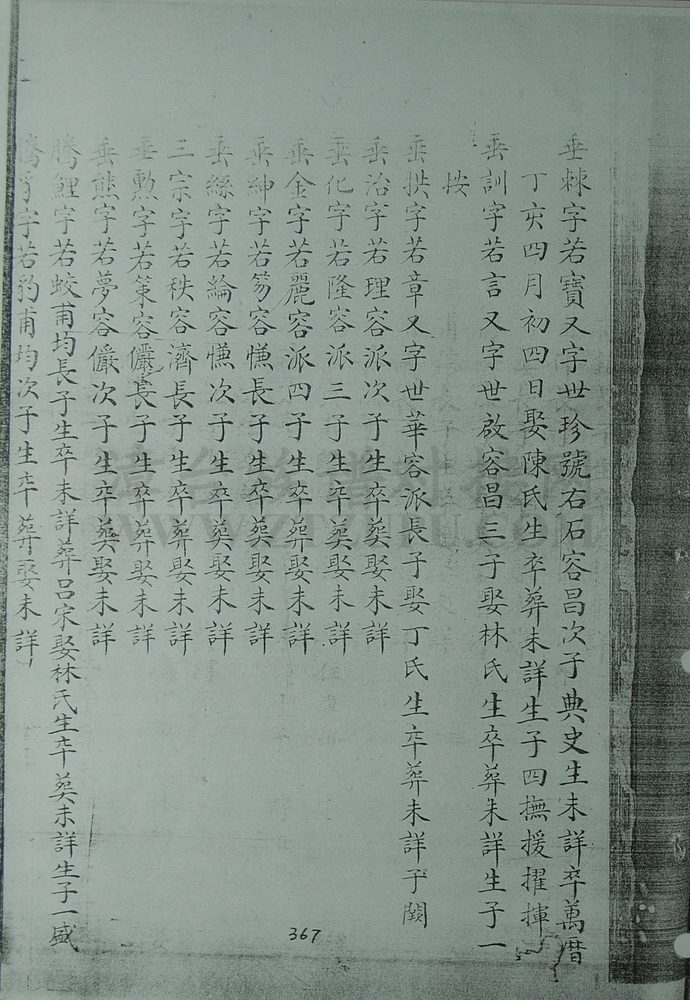 垂棘字若寶又字世珍號右石容昌次子典史生未詳卒萬曆
丁亥四月初四日娶陳氏生卒葬未詳生子四撫援擢揮
垂訓字若言又字世啟容昌三子娶林氏生卒葬未詳生子一
按
垂拱字若章又字世華容派長子娶丁氏生卒葬未詳子闕
垂治字若理容派次子生卒葬娶未詳
垂化字若隆容派三子生卒葬娶未詳
垂金字若麗容派四子生卒葬娶未詳
垂紳字若笏容慊長子生卒葬娶未詳
垂絲字若綸容慊次子生卒葬娶未詳
三宗字若秩容濟長子生卒葬娶未詳
垂勲字若策容儼長子生卒葬娶未詳
垂熊字若夢容儼次子生卒葬娶未詳
騰鯉字若蛟甫均長子生卒未詳葬呂宋娶林氏生卒葬未詳生子一盛
騰豸字若豹甫均次子生卒葬娶未詳
367